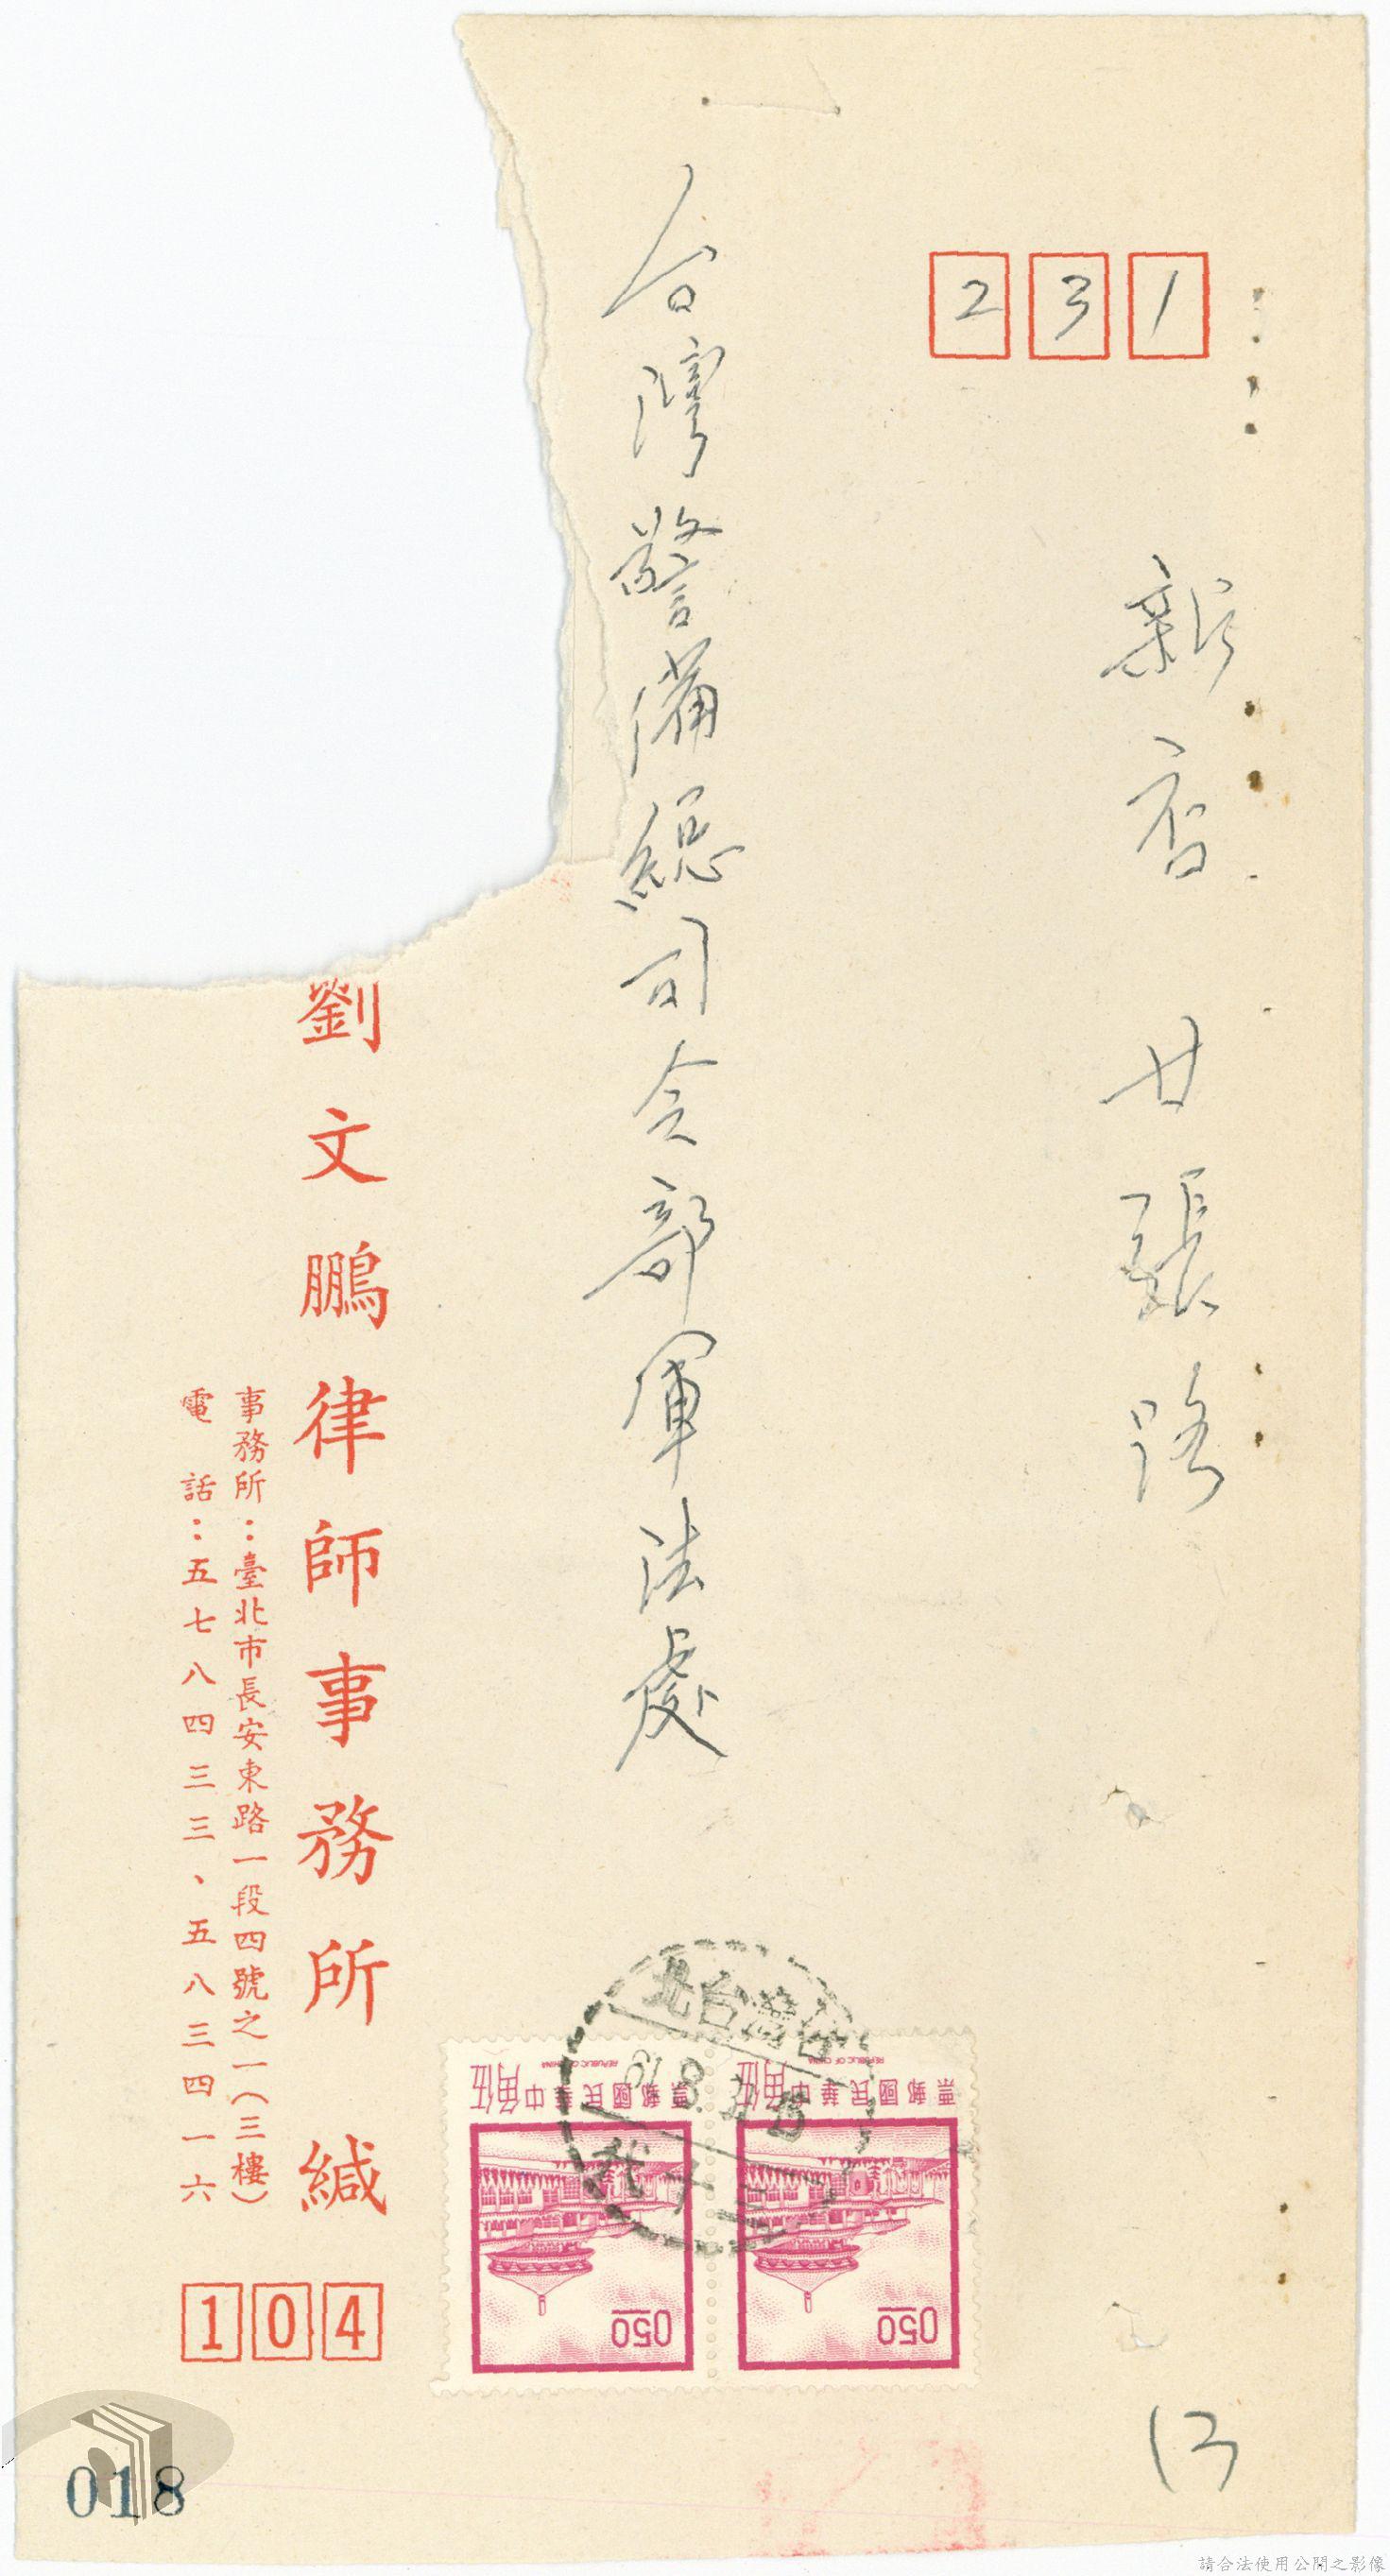 231
新店 廿張路
台灣警備總司令部軍法處
劉文鵬律師事務所 緘
事務所：臺北市長安東路一段四號之一（三樓）
電話：五七八四三三、五八三四一六
104
中華民國郵票 伍角
REPUBLIC OF CHINA
0.50
中華民國郵票 伍角
REPUBLIC OF CHINA
0.50
018
請合法使用公開之影像